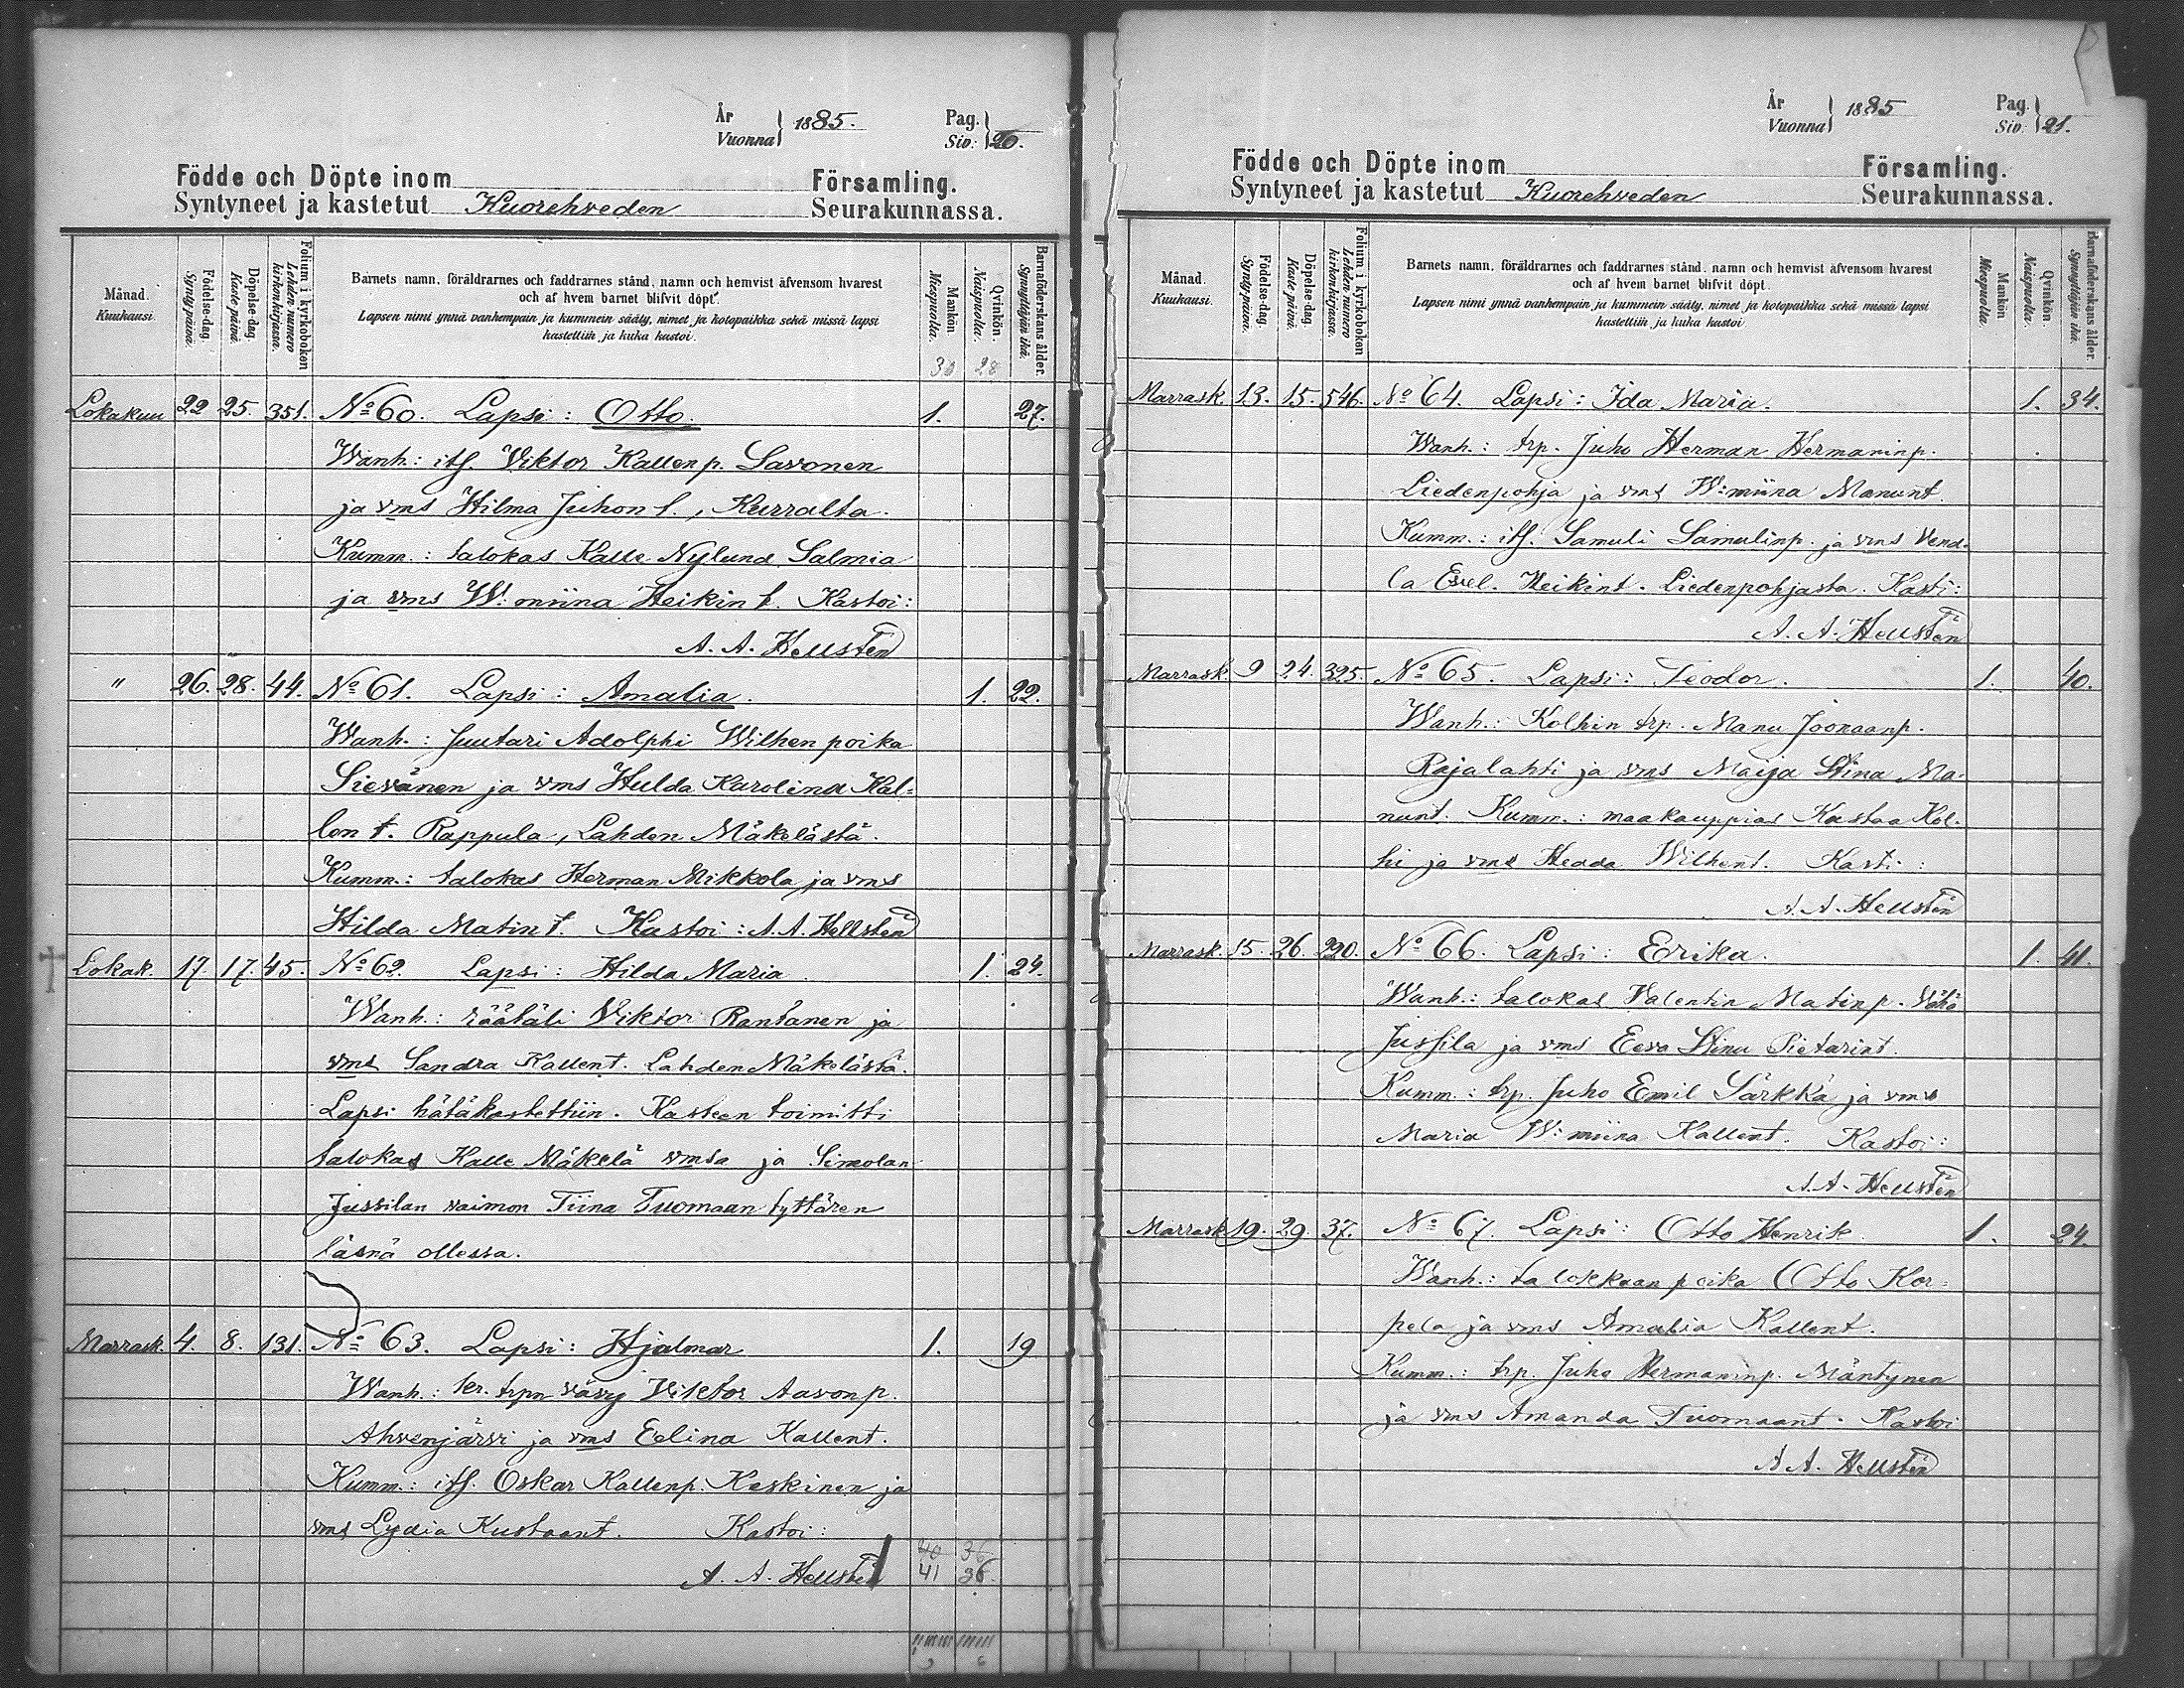 År
Vuonna } 1885.
Pag.
Siv: } 20.
Födde och Döpte inom Församling.
Syntyneet ja kastetut Kuorehveden Seurakunnassa.
Månad.
Kuukausi.
Födelse-dag.
Synty-päivä.
Döpelse-dag.
Kaste-päivä.
Folium i kyrkoboken
Lehden numero
kirkonkirjassa.
Barnets namn, föräldrarnes och faddrarnes stånd, namn och hemvist äfvensom hvarest
och af hvem barnet blifvit döpt.
Lapsen nimi ynnä vanhempain ja kummein sääty, nimet ja kotopaikka sekä missä lapsi
kastettiin ja kuka kastoi.
Mankön.
Miespuolia.
Qvinkön.
Naispuolia.
Barnaföderskans ålder.
Synnyttäjän ikä.
30 28
Lokakuu 22 25. 351. No 60. Lapsi: Otto. 1. 27.
Wanh: itf. Viktor Kallenp. Savonen
ja vms Hilma Juhon t., Kurralta.
Kumm.: talokas Kalle Nylund Salmia
ja vms W:miina Heikin t. Kastoi:
A. A. Hellstén
" 26. 28. 44. No 61. Lapsi: Amalia. 1. 22.
Wanh.: suutari Adolphi Wilhen poika
Sievänen ja vms Hulda Karolina Kal=
len t. Rappula, Lahden Mäkelästä.
Kumm.: talokas Herman Mikkola ja vms
Hilda Matin t. Kastoi: A. A. Hellstén
Lokak. 17. 17. 45. No 62. Lapsi: Hilda Maria 1. 24.
Wanh.: räätäli Viktor Rantanen ja
vms Sandra Kallent. Lahden Mäkelästä.
Lapsi hätäkastettiin. Kasteen toimitti
talokas Kalle Mäkelä vmsa ja Simolan
Jussilan vaimon Tiina Tuomaan tyttären
läsnä ollessa.
Marrask. 4. 8. 131. No 63. Lapsi: Hjalmar 1. 19
Wanh.: kr. trpn vävy Viktor Aavonp.
Ahvenjärvi ja vms Eelina Kallent.
Kumm.: itf. Oskar Kallenp. Keskinen ja
vms Lydia Kustaant. Kastoi:
40 36
A. A. Hellstén 41 36.
6
År
Vuonna } 1885
Pag.
Siv: } 21.
Födde och Döpte inom Församling.
Syntyneet ja kastetut Kuorehveden Seurakunnassa.
Månad.
Kuukausi.
Födelse-dag.
Synty-päivä.
Döpelse-dag.
Kaste-päivä.
Folium i kyrkoboken
Lehden numero
kirkonkirjassa.
Barnets namn, föräldrarnes och faddrarnes stånd, namn och hemvist äfvensom hvarest
och af hvem barnet blifvit döpt.
Lapsen nimi ynnä vanhempain ja kummein sääty, nimet ja kotopaikka sekä missä lapsi
kastettiin ja kuka kastoi.
Mankön
Miespuolia.
Qvinkön.
Naispuolia.
Barnaföderskans ålder.
Synnyttäjän ikä.
Marrask. 13. 15. 546. No 64. Lapsi: Ida Maria. 1. 34.
Wanh.: trp. Juho Herman Hermaninp.
Liedenpohja ja vms W:miina Manunt.
Kumm.: itf. Samuli Samulinp. ja vms Vend=
la Evel. Heikint. Liedenpohjasta. Kasti:
A. A. Hellstén
Marrask. 9 24. 325. No 65. Lapsi: Teodor. 1. 40.
Wanh.: Kolhin trp. Manu Joonaanp.
Rajalahti ja vms Maija Stina Ma-
nunt. Kumm.: maakauppias Kustaa Kol-
hi ja vms Hedda Wilhent. Kasti:
A. A. Hellstén
Marrask. 15. 26. 220. No 66. Lapsi: Erika. 1. 41.
Wanh.: talokas Valentin Matinp. Vähä
Jussila ja vms Eeva Stina Pietarint.
Kumm.: trp. Juho Emil Särkkä ja vms
Maria W:miina Kallent. Kastoi:
A. A. Hellstén
Marrask 19. 29. 37. No 67. Lapsi: Otto Henrik 1. 24.
Wanh.: talokkaan poika Otto Kor=
pela ja vms Amalia Kallent.
Kumm.: trp. Juho Hermaninp. Mäntynen
ja vms Amanda Tuomaant. Kastoi
A A. Hellstén